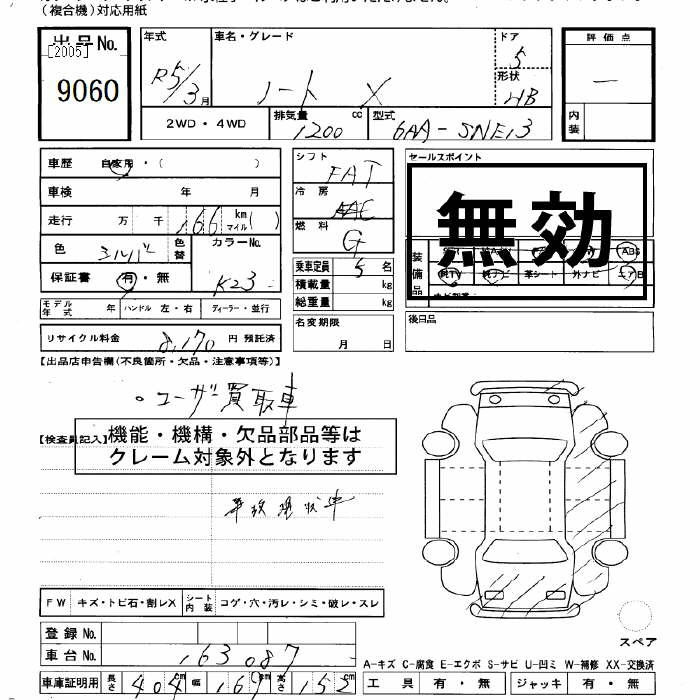 (複合機)対応用紙
出品No.
[2005]
9060
年式 R5/3月
車名・グレード ノート X
ドア 5
形状 HB
評価点 —
内装
2WD・4WD
排気量 1200 cc
型式 6AA-SNE13
車歴 自家用・( )
車検 年 月
走行 万 千 166 km マイル( )
色 シルバー 色替 カラーNo. K23
保証書 有・無
モデル年式 年 ハンドル 左・右 ディーラー・並行
リサイクル料金 8,170 円 預託済
シフト FAT
冷房 AAC
燃料 G
乗車定員 5 名
積載量 kg
総重量 kg
名変期限
月 日
セールスポイント
無効
装備品
ABS
純TV 純ナビ 革シート 外ナビ エアB
後日品
【出品店申告欄(不良箇所・欠品・注意事項等)】
・ユーザー買取車
【検査員記入】
機能・機構・欠品部品等は
クレーム対象外となります
事故現状車
FW キズ・トビ石・割レX シート内装 コゲ・穴・汚レ・シミ・破レ・スレ
登録No.
車台No. 163087
車庫証明用 長さ 404 cm 幅 169 cm 高さ 152 cm
スペア
A-キズ C-腐食 E-エクボ S-サビ U-凹ミ W-補修 XX-交換済
工具 有・無 ジャッキ 有・無